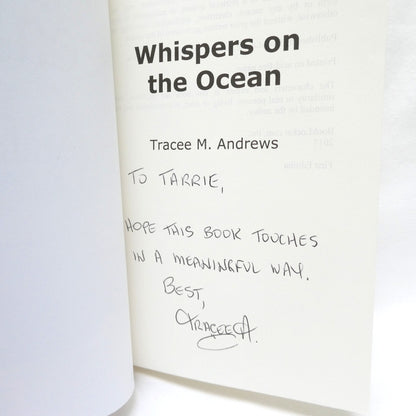 Whispers on
the Ocean
Tracee M. Andrews
TO TARRIE,
HOPE THIS BOOK TOUCHES
IN A MEANINGFUL WAY.
BEST,
TRACEE A.